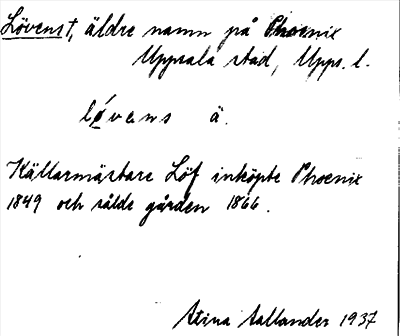 Lövenst, äldre namn på Phoenix
Uppsala stad, Upps. l.
lǿvens ä.
Källarmästare Löf inköpte Phoenix
1849 och sålde gården 1866.
Stina Aallander 1937